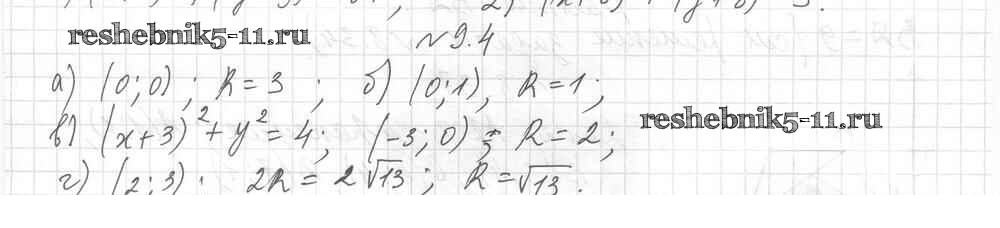 reshebnik5-11.ru
№9.4
а) (0; 0) ; R = 3 ; б) (0; 1), R = 1;
в) (x+3)² + y² = 4; (-3; 0) ; R = 2;
reshebnik5-11.ru
г) (2; 3). 2R = 2√13 ; R = √13.